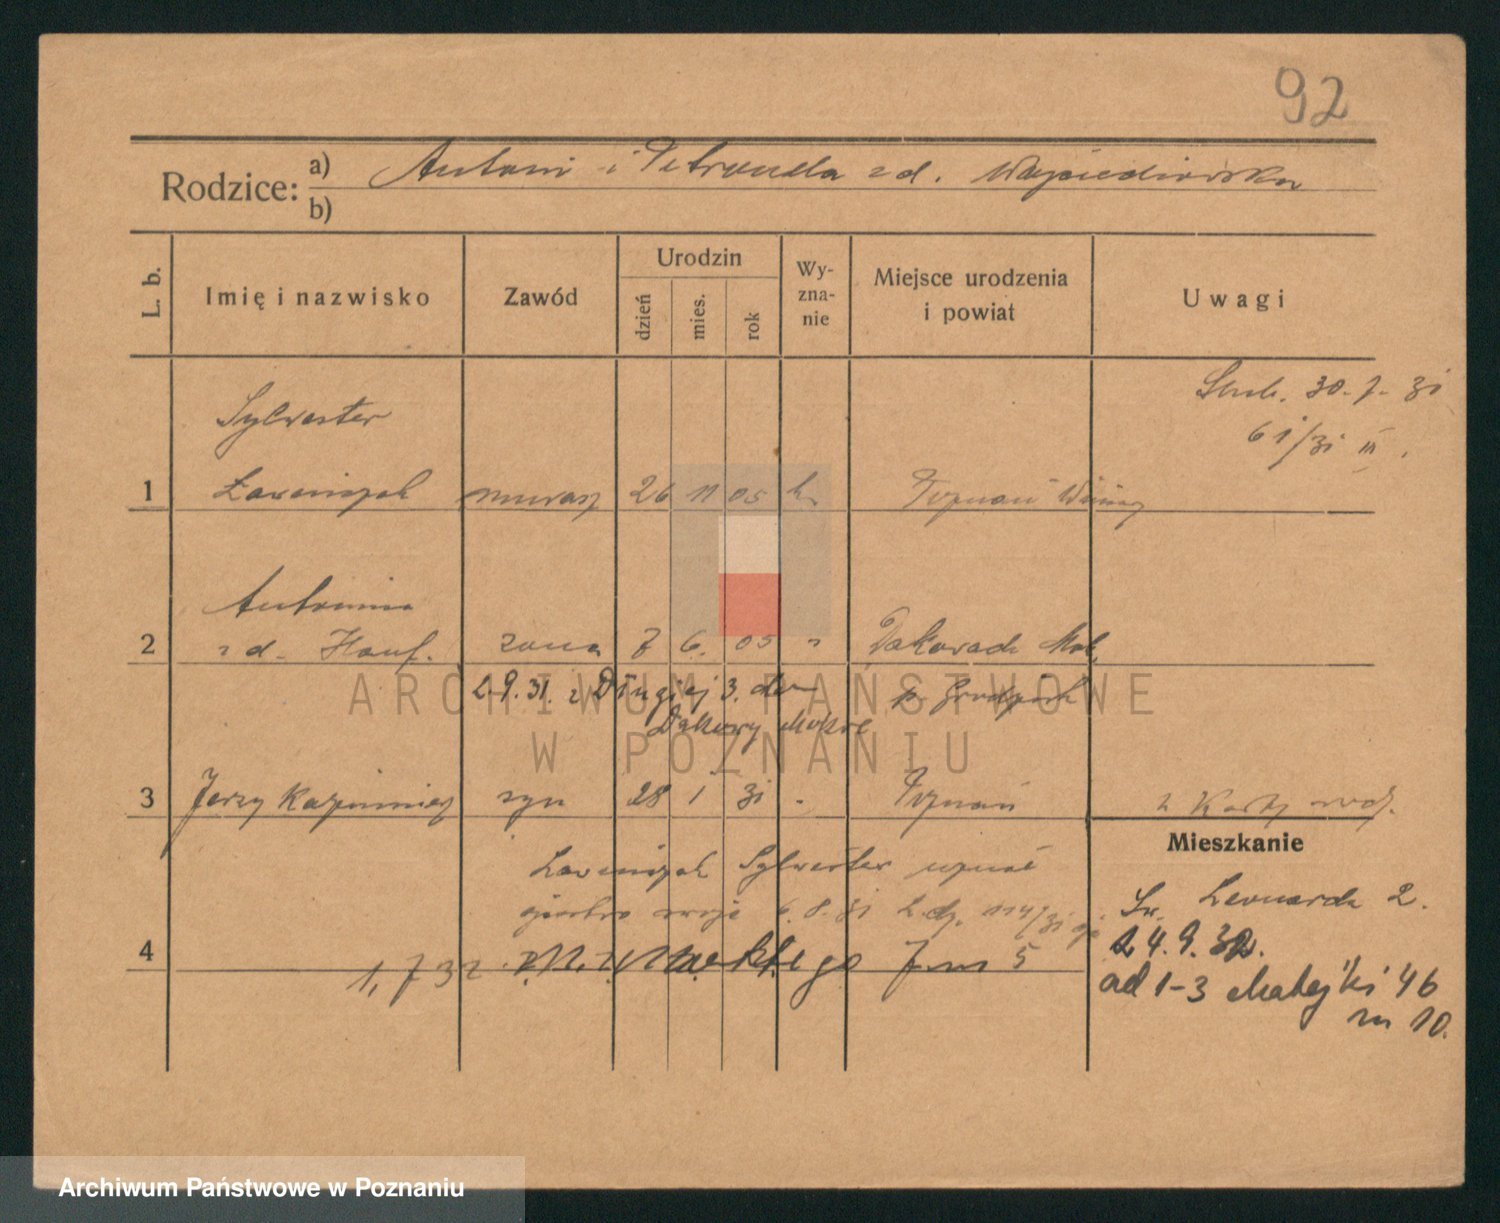 92
Rodzice: a) Antoni i Petronela zd. Wojciechowska
b)
L. b.
Imię i nazwisko
Zawód
Urodzin
dzień
mies.
rok
Wy-
zna-
nie
Miejsce urodzenia
i powiat
Uwagi
Ślub. 30. 7. 31
61/31 III.
Sylwester
1 Ławniczak murarz 26 11 05 k. Poznań Winiary
Antonina
2 zd. Hauf. żona 7 6. 05 " Dakowach Mok.
2.9.31. z Długiej 3. do p. Grodzisk
Dakowy Mokre
3 Jerzy Kazimierz syn 28 1 31 " Poznań z Karty rodz.
Mieszkanie
Ławniczak Sylwester uznał
ojcostwo swoje 6.8.31 L.dz. 114/31
Św. Leonarda 2.
24.9.32.
4
1.7 32 7 m 5
ad 1-3 Matejki 46
m 10.
ARCHIWUM PAŃSTWOWE
W POZNANIU
Archiwum Państwowe w Poznaniu